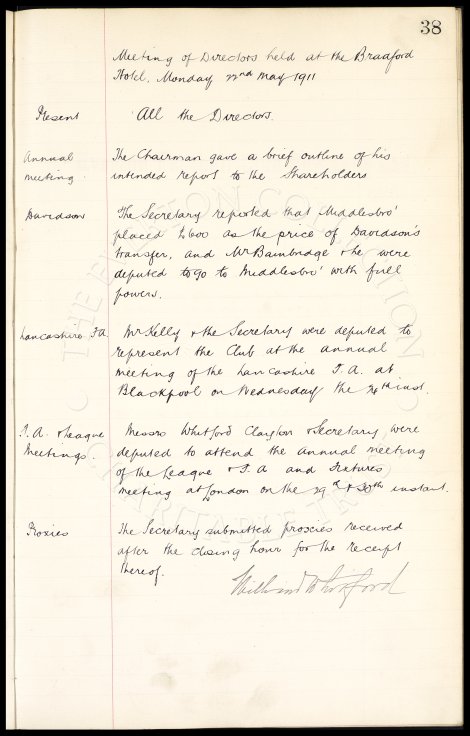 38
Meeting of Directors held at the Bradford
Hotel, Monday 22nd May 1911
Present All the Directors.
Annual The Chairman gave a brief outline of his
meeting. intended report to the Shareholders
Davidson The Secretary reported that Middlesbro'
placed £600 as the price of Davidson's
transfer, and Mr Bainbridge & he were
deputed to go to Middlesbro' with full
powers.
Lancashire F.A. Mr Kelly & the Secretary were deputed to
represent the Club at the annual
meeting of the Lancashire F.A. at
Blackpool on Wednesday the 24th inst.
F.A. & League Messrs Whitford Clayton & Secretary were
Meetings. deputed to attend the annual meeting
of the League & F.A and Fixtures
meeting at London on the 29th & 30th instant.
Proxies The Secretary submitted proxies received
after the closing hour for the receipt
thereof.
William Whitford